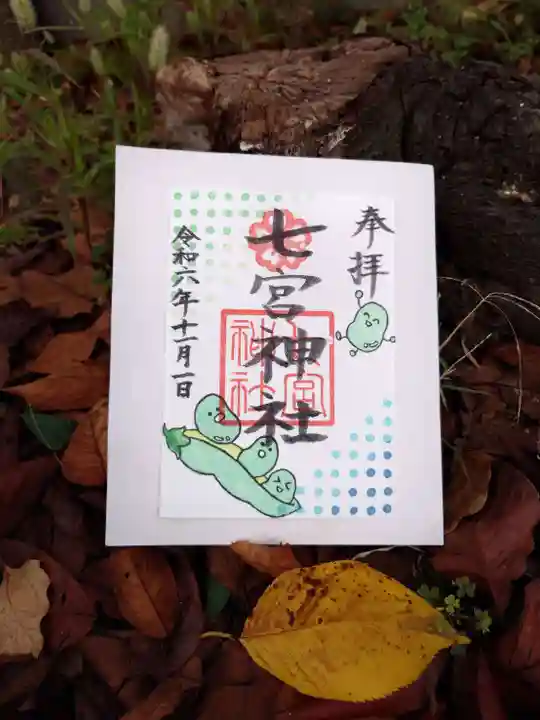 奉拝
七宮神社
七宮神社
令和六年十一月一日